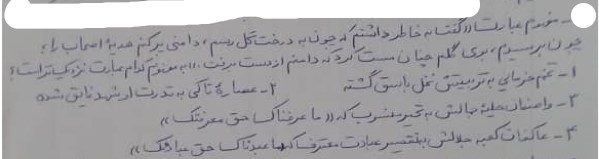 - مفهوم عبارت «گفت به خاطر داشتم که چون به درخت گل رسم، دامنی پر کنم هدیهٔ اصحاب را؛
چون برسیدم، بوی گلم چنان مست کرد که دامنم از دست برفت.» به مفهوم کدام عبارت نزدیک تر است؟
۱- تخم خرمایی به تربیتش نخل باسق گشته ۲- عصارهٔ تاکی به قدرت او شهد فایق شده
۳- واصفان حلیهٔ جمالش به تحیر منسوب که «ما عرفناک حق معرفتک»
۴- عاکفان کعبه جلالش به تقصیر عبادت معترف که «ما عبدناک حق عبادتک»